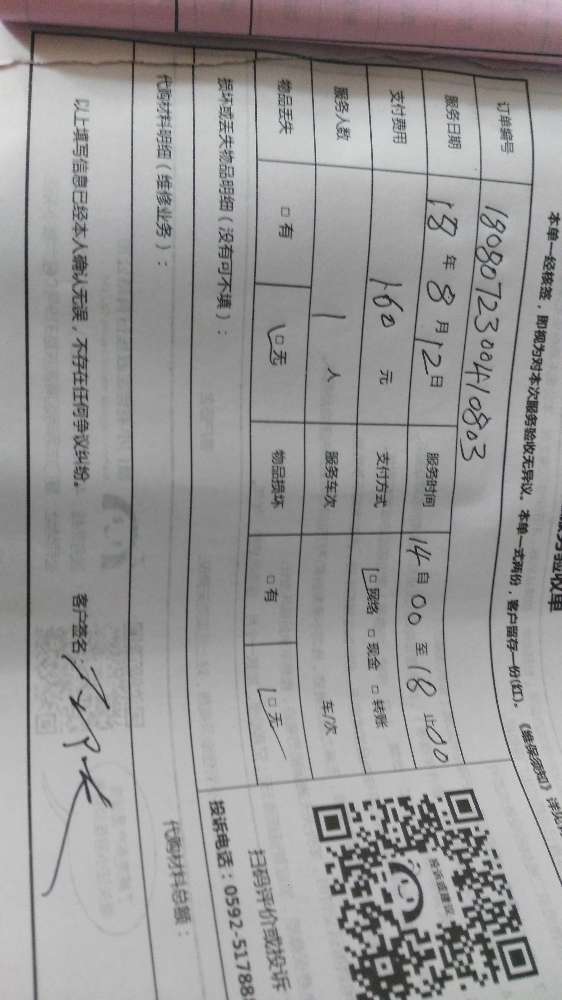 务验收单
本单一经核签，即视为对本次服务验收无异议。本单一式两份，客户留存一份(红)。《维保须知》详见
订单编号 180807230041 0803
服务日期 18 年 8 月 12 日 服务时间 14 自 00 至 18 止 00
支付费用 160 元 支付方式 □ 网络 □ 现金 □ 转账
服务人数 1 人 服务车次 车/次
物品丢失 □ 有 □ 无 物品损坏 □ 有 □ 无
损坏或丢失物品明细（没有可不填）：
投诉建议
扫码评价或投诉
投诉电话：0592-51788
代购材料明细（维修业务）： 代购材料总额：
以上填写信息已经本人确认无误，不存在任何争议纠纷。 客户签名：